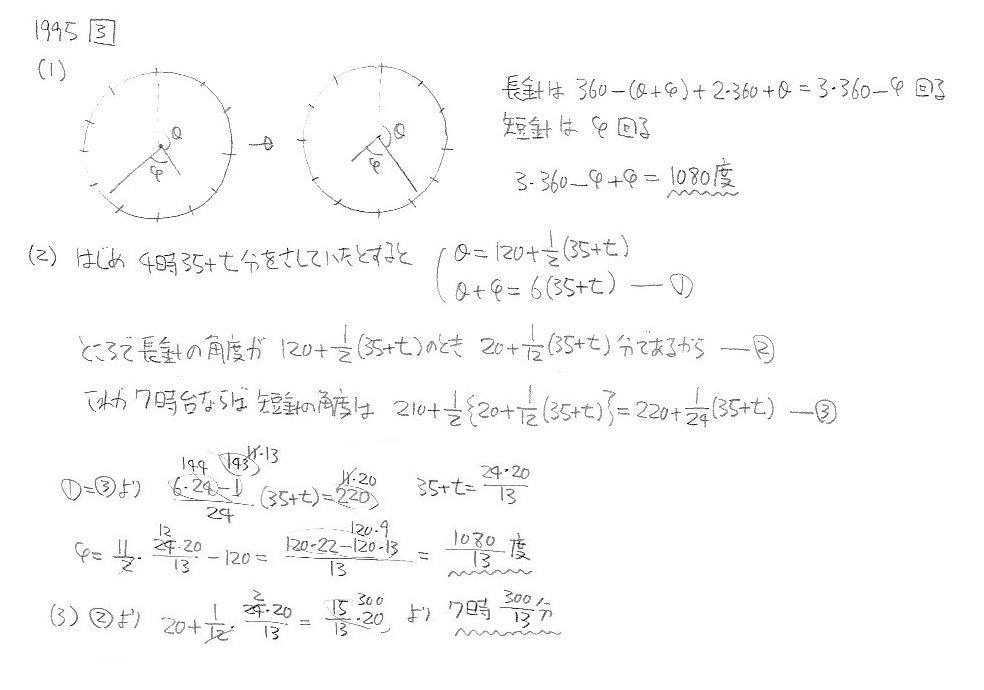 1995 3
(1)
θ φ → θ φ
長針は 360-(θ+φ)+2・360+θ=3・360-φ 回る
短針は φ 回る
3・360-φ+φ=1080度
(2) はじめ 4時35+t分をさしていたとすると
θ=120+1/2(35+t)
θ+φ=6(35+t) ―①
ところで長針の角度が 120+1/2(35+t)のとき 20+1/12(35+t)分であるから ―②
これが7時台ならば短針の角度は 210+1/2{20+1/12(35+t)}=220+1/24(35+t) ―③
144 143 11・13 11・20
①=③より (6・24-1)/24・(35+t)=220 35+t=24・20/13
12 120・9
φ=11/2・24・20/13-120=(120・22-120・13)/13=1080/13度
2 300
(3) ②より 20+1/12・24・20/13=15/13・20 より 7時300/13分